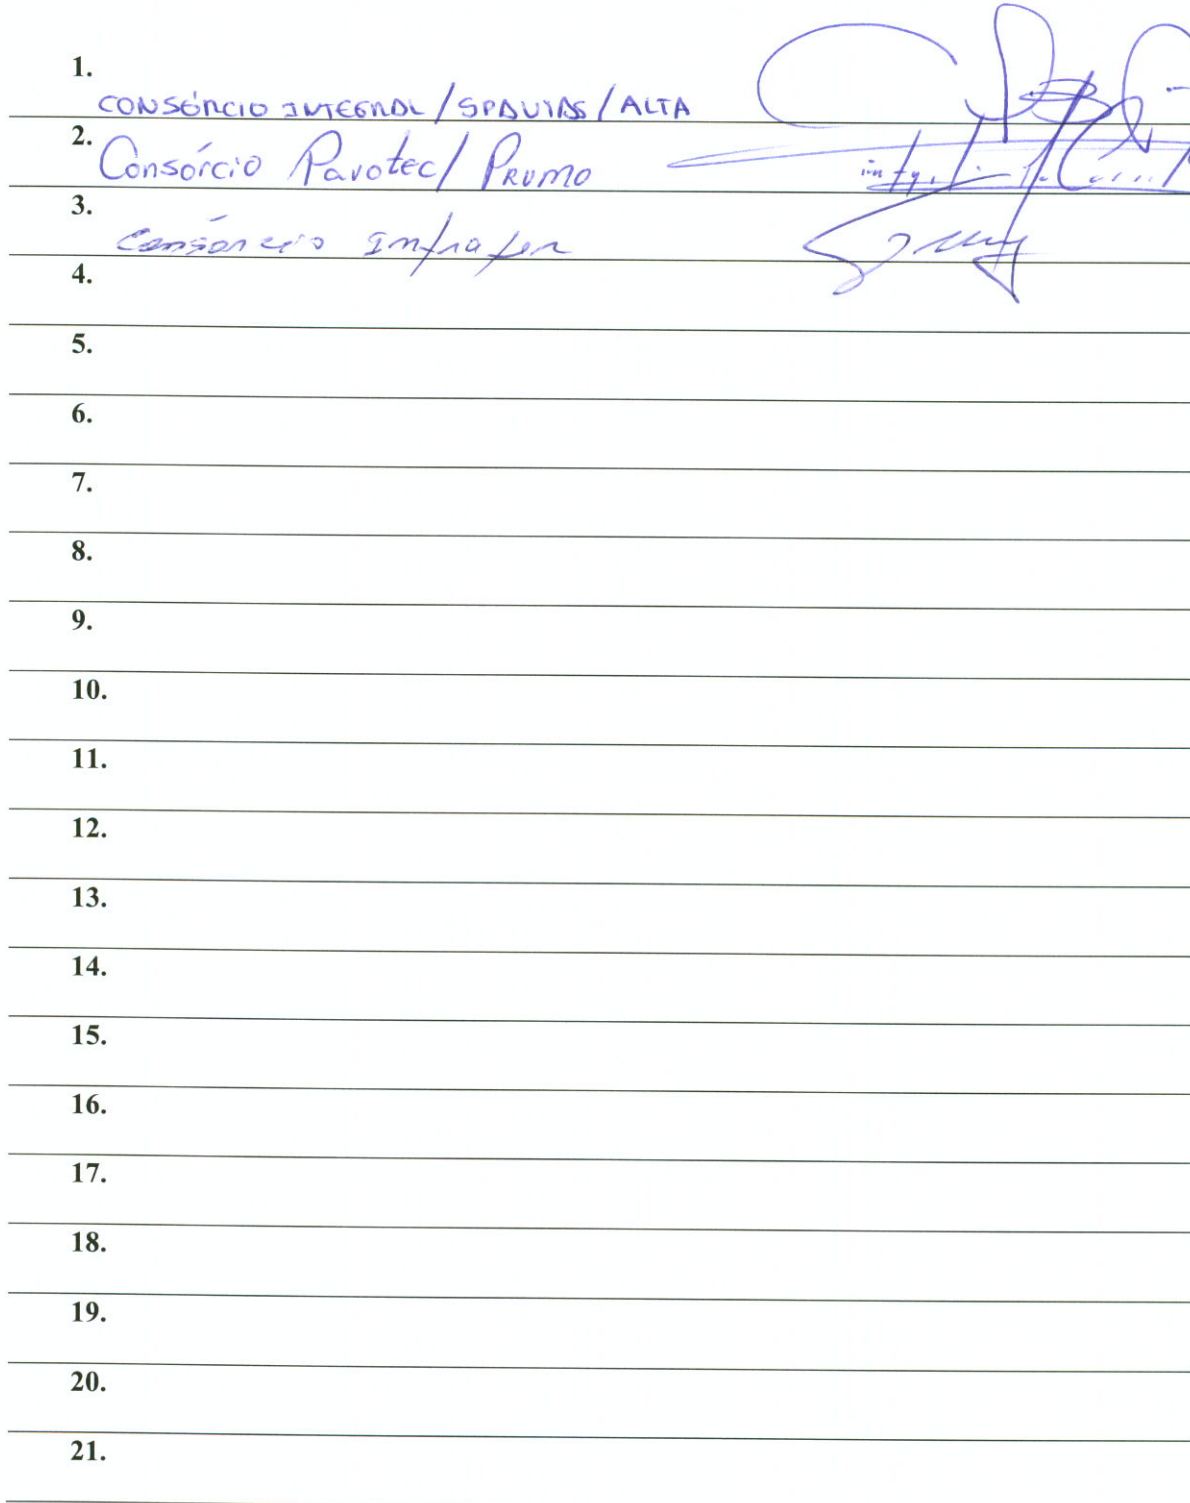 1.
CONSÓRCIO INTEGRAL/SPAVIAS/ALTA
2.
Consórcio Pavotec/PRUMO
3.
Consórcio Infrafer
4.
5.
6.
7.
8.
9.
10.
11.
12.
13.
14.
15.
16.
17.
18.
19.
20.
21.